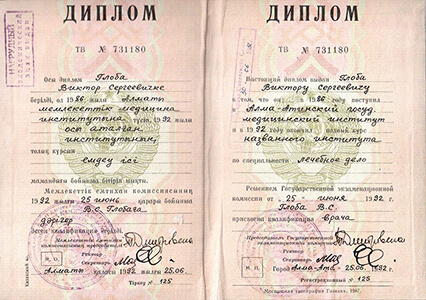 ДИПЛОМ
ТВ № 731180
Осы диплом Глоба
Виктор Сергеевичке
берілді, ол 1986 жылы Алматы
мемлекеттік медицина
институтына түсіп, 1992 жылы
осы аталған
институтының
толық курсын
емдеу ісі
мамандығы бойынша бітіріп шықты.
Мемлекеттік емтихан комиссиясының
1992 жылғы 25 июнь қарары бойынша
В.С. Глобаға
дәрігер
квалификациясы берілді.
Мемлекеттік емтихан
Ректор
Секретарь
М. О.
Алматы қаласы 1992 жылғы 25.06.
Тіркеу № 125
ДИПЛОМ
ТВ № 731180
Настоящий диплом выдан Глоба
Виктору Сергеевичу
в том, что он в 1986 году поступил
в Алма-Атинский госуд.
медицинский институт
и в 1992 году окончил полный курс
названного института
по специальности лечебное дело
Решением Государственной экзаменационной
комиссии от 25 июня 1992 г.
Глоба В.С.
присвоена квалификация врача
Председатель Государственной
экзаменационной комиссии
Ректор
Секретарь
М. П.
Город Алма-Ата 25.06. 1992 г.
Регистрационный № 125
Московская типография Гознака. 1987.